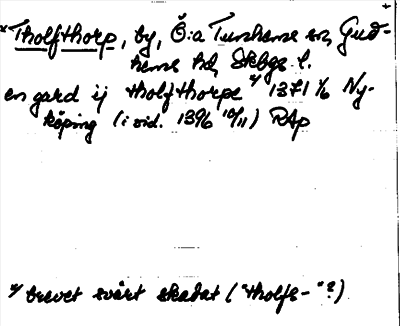 *Tholfthorp, by, Ö:a Tunhems sn, Gud-
hems hd, Skbgs l.
en gard ij tholfthorpe x/ 1371 1/6 Ny-
köping (i vid. 1396 10/11) RAp
x/ brevet svårt skadat ("tholfs-"?)